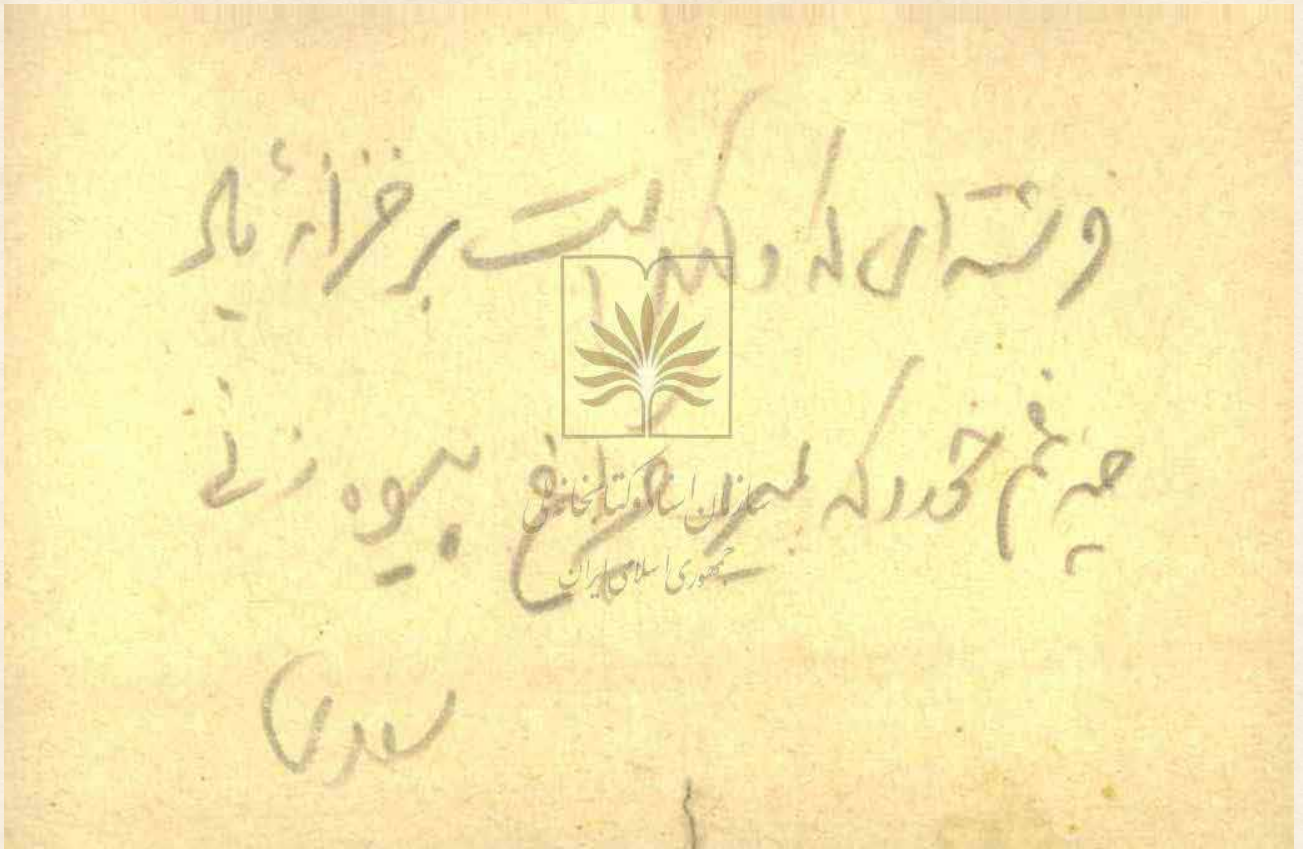 فرشته‌ای که وکیل است بر خزائن باد
چه غم خورد که بمیرد چراغ بیوه زنی
سازمان اسناد و کتابخانه ملی
جمهوری اسلامی ایران
سعدی